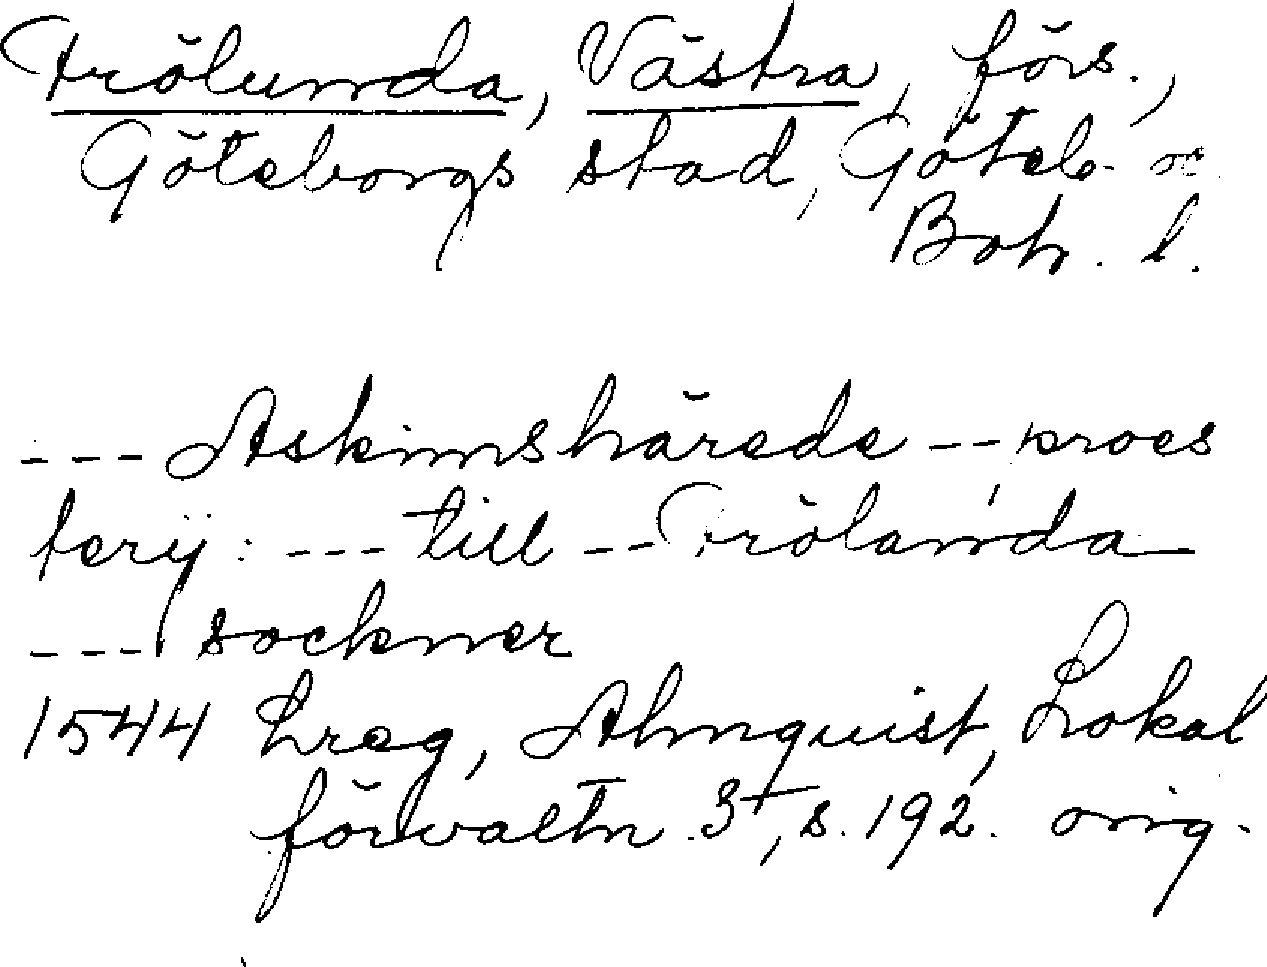 Frölunda, Västra, förs.,
Göteborgs stad, Göteb- o
Boh. l.
--- Askimshärede -- proes
terij: --- till -- Frölanda
--- sockner
1544 Lreg, Almquist, Lokal
förvaltn. 3+, s. 192. orig.